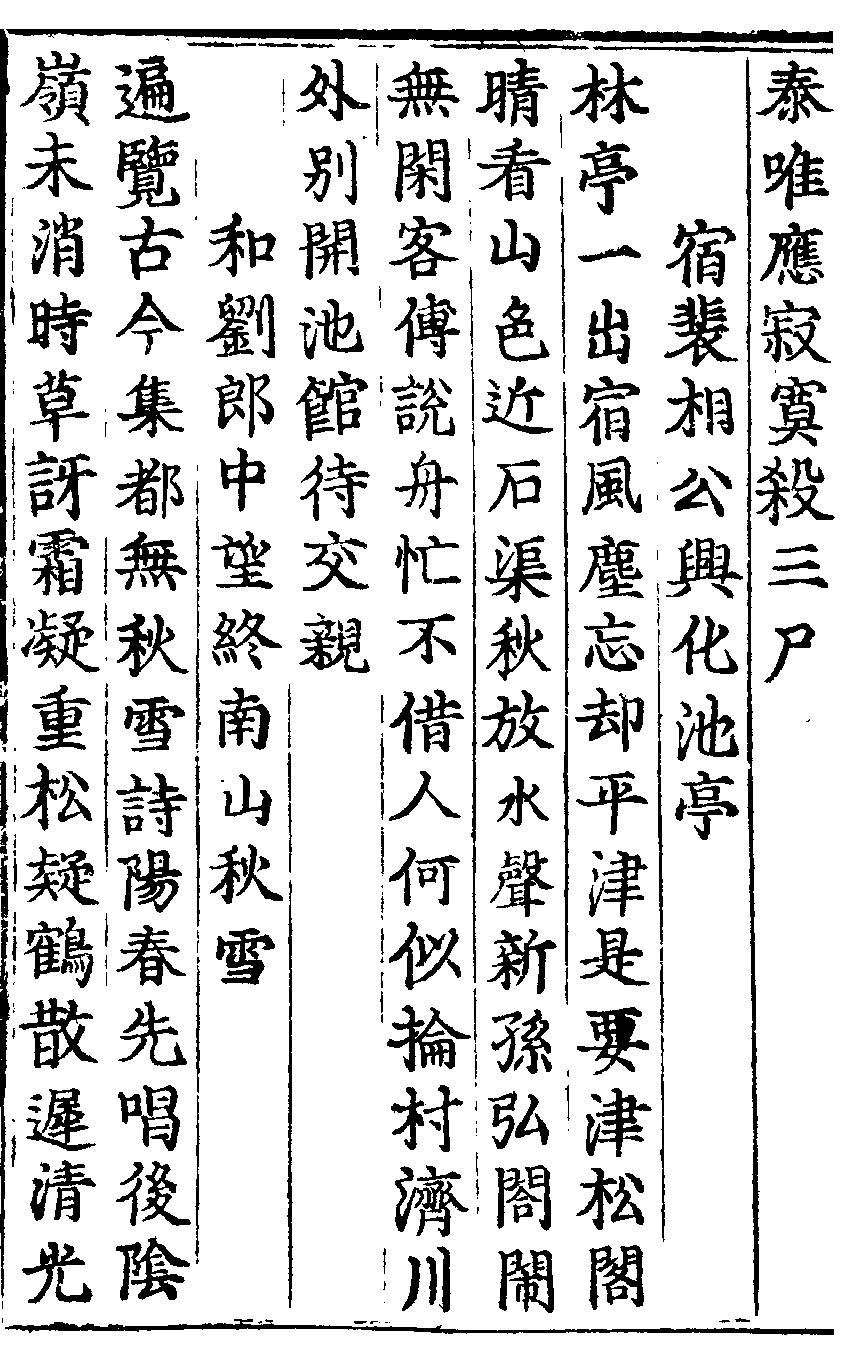 泰唯應寂寞殺三尸
宿裴相公興化池亭
林亭一出宿風塵忘却平津是要津松閣
晴看山色近石渠秋放水聲新孫弘閤鬧
無閑客傅說舟忙不借人何似掄村濟川
外别開池館待交親
和劉郎中望終南山秋雪
遍覽古今集都無秋雪詩陽春先唱後陰
嶺未消時草訝霜凝重松疑鶴散遲清光